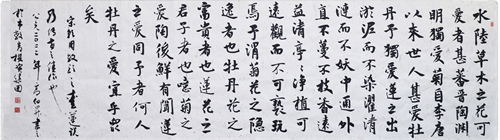 水陸草木之花可
愛者甚蕃晉陶淵
明獨愛菊自李唐
以来世人甚愛牡
丹予獨愛蓮之出
淤泥而不染濯清
漣而不妖中通外
直不蔓不枝香遠
益清亭亭净植可
遠觀而不可褻玩
焉予謂菊花之隐
逸者也牡丹花之
富貴者也蓮花之
君子者也噫菊之
愛陶後鮮有聞蓮
之愛同予者何人
牡丹之愛宜乎衆
矣
宋周敦頤之愛蓮說